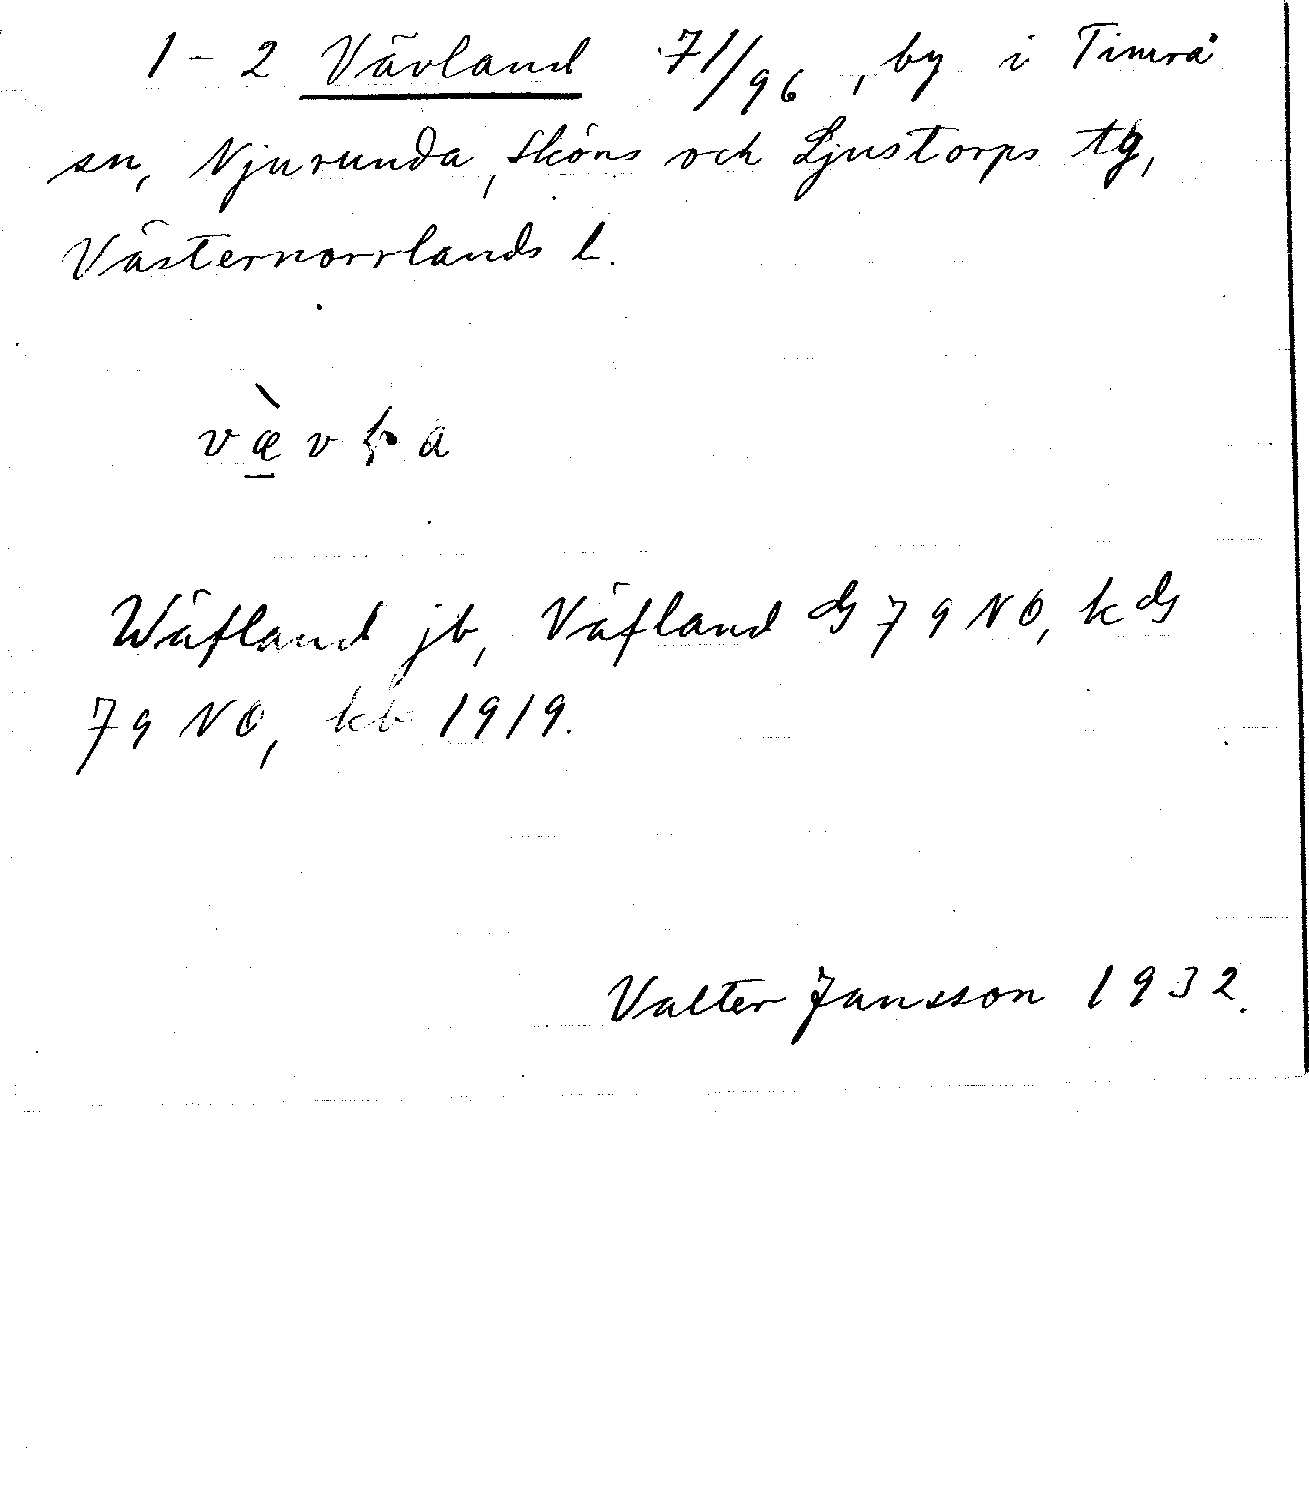 1 - 2 Vävland 71/96, by i Timrå
sn, Njurunda, Sköns och Ljustorps tg,
Västernorrlands l.
Wäfland jb, Väfland ds 79 NO, kds
79 NO, kb 1919.
Valter Jansson 1932.